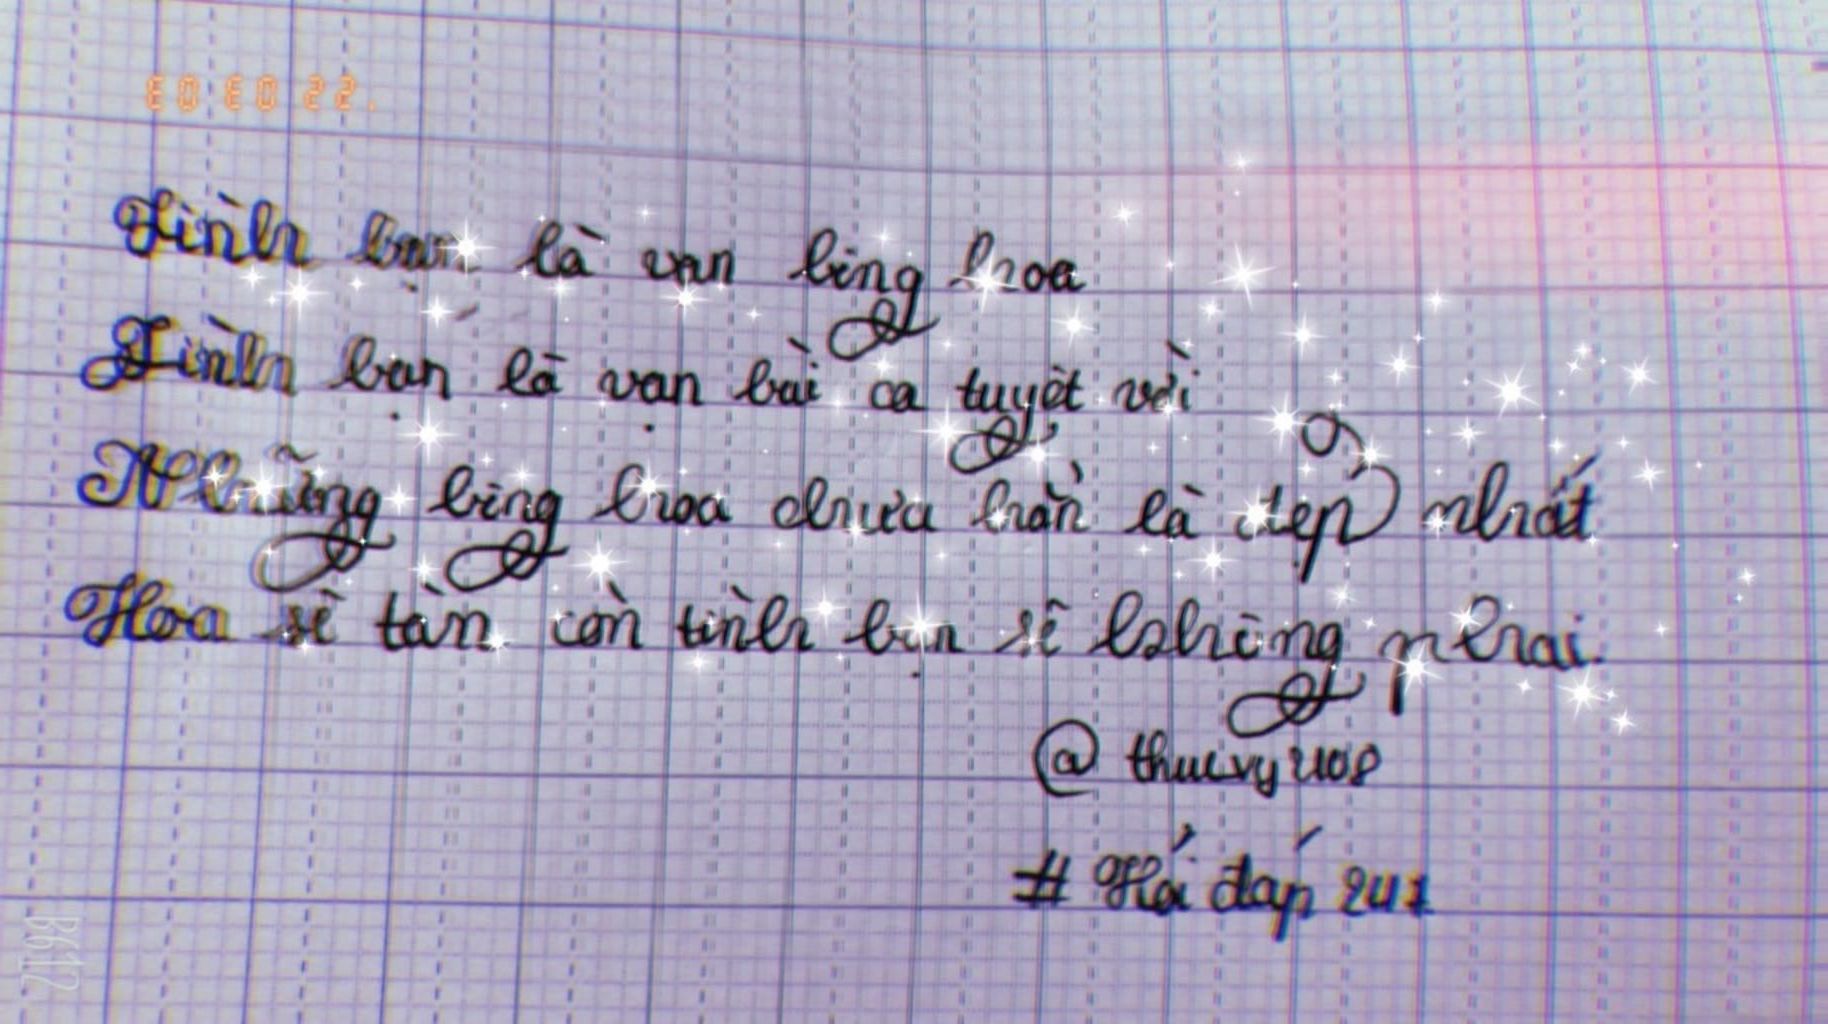 03 03 22.
Tình bạn là vạn bông hoa
Tình bạn là vạn bài ca tuyệt vời
Những bông hoa chưa hẳn là đẹp nhất
Hoa sẽ tàn còn tình bạn sẽ không phai.
@ thucvy2108
# Hỏi đáp 247
B612